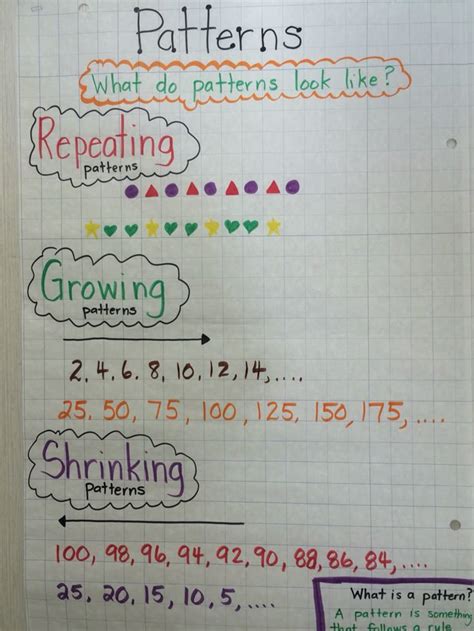 Patterns
What do patterns look like?
Repeating
patterns
Growing
patterns
2, 4, 6, 8, 10, 12, 14, ....
25, 50, 75, 100, 125, 150, 175, ....
Shrinking
patterns
100, 98, 96, 94, 92, 90, 88, 86, 84, ....
25, 20, 15, 10, 5, ....
What is a pattern?
A pattern is something
that follows a rule